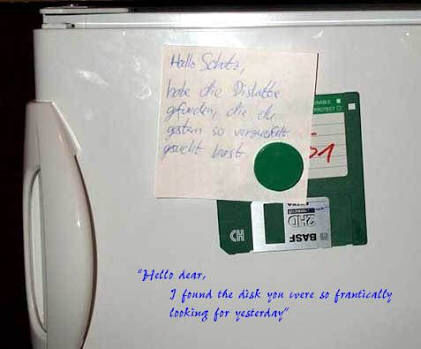 Hallo Schatz,
habe die Diskette
gefunden, die du
gestern so verzweifelt
gesucht hast
01
HD
BASF
"Hello dear,
I found the disk you were so frantically
looking for yesterday"